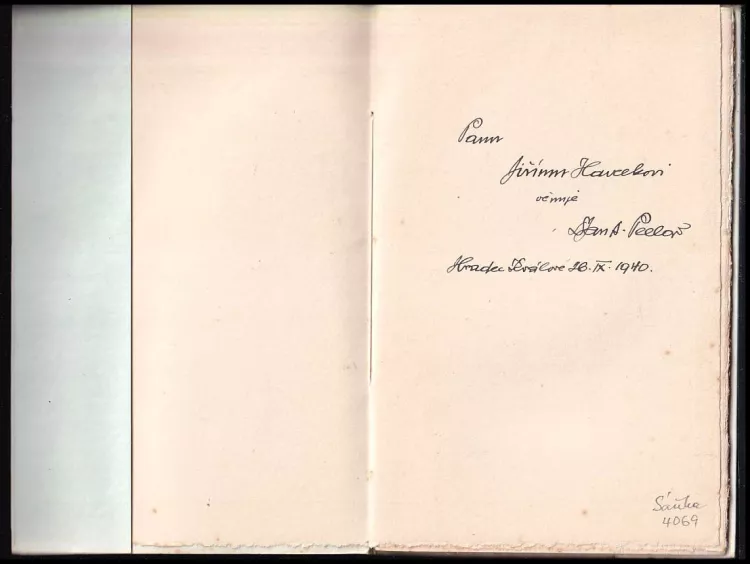 Panu
Jiřímu Havelkovi
věnuje
Jan A.
Hradec Králové 28. IX. 1940.
4069